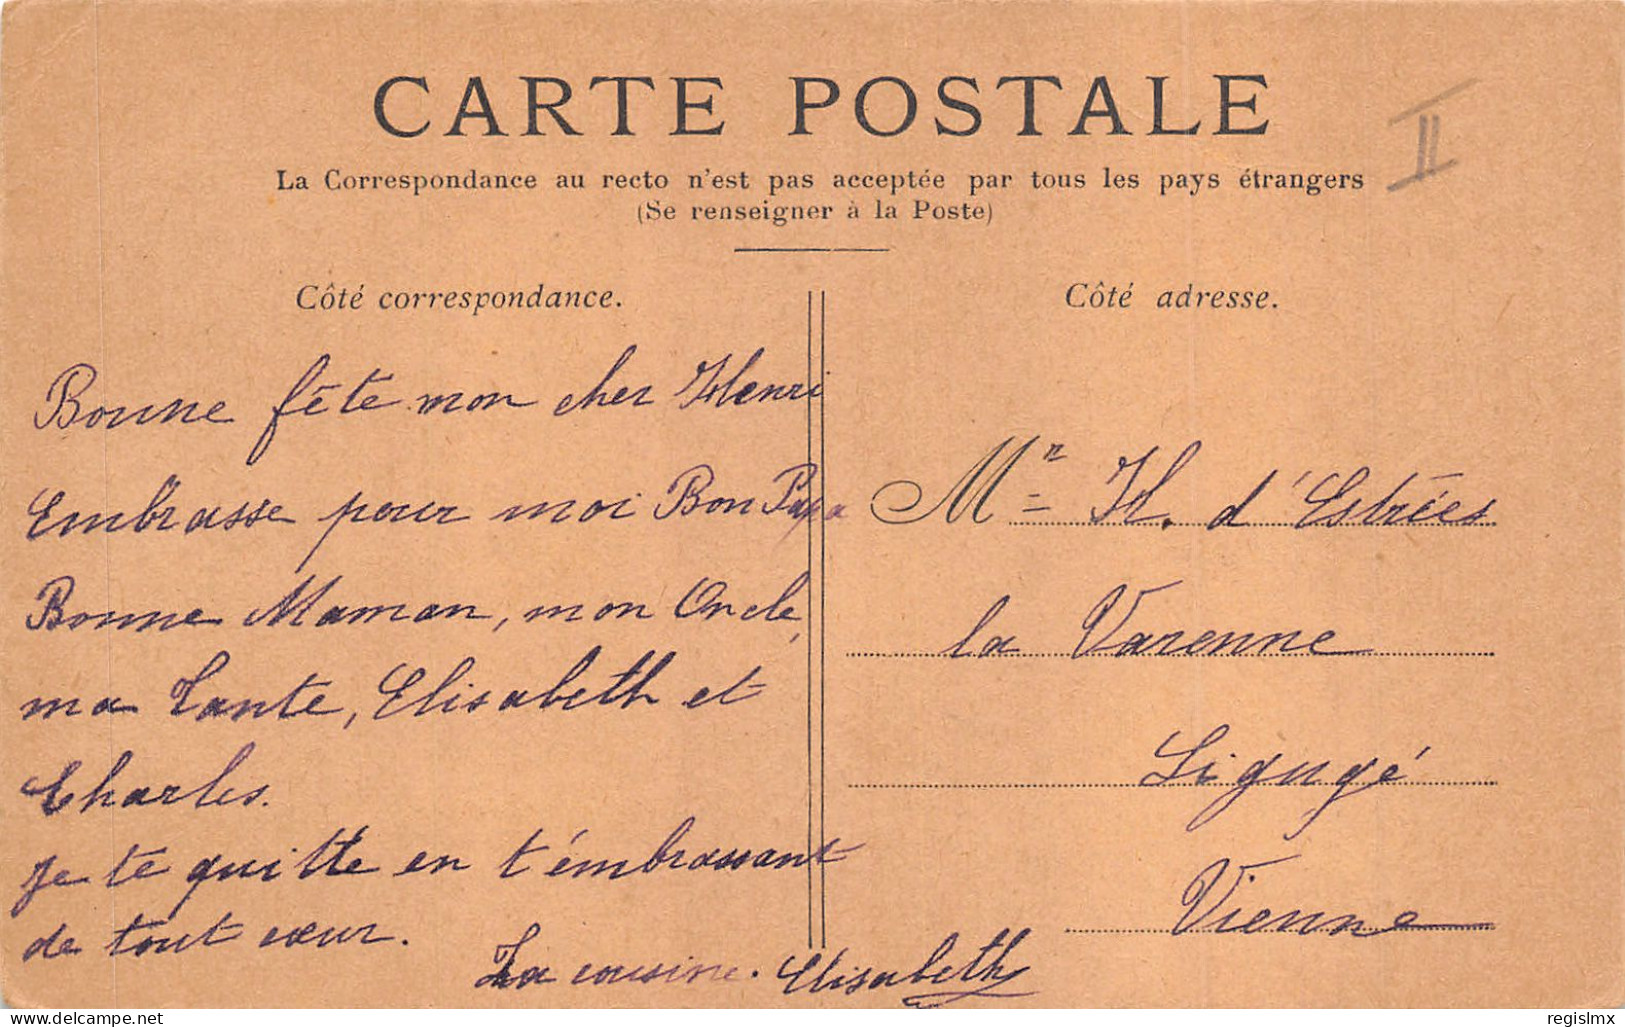 CARTE POSTALE
II
La Correspondance au recto n'est pas acceptée par tous les pays étrangers
(Se renseigner à la Poste)
Côté correspondance.
Bonne fête mon cher Henri
Embrasse pour moi Bon Papa
Bonne Maman, mon Oncle,
ma Tante, Elisabeth et
Charles.
Je te quitte en t'émbrassant
de tout cœur.
La cousine. Elisabeth
Côté adresse.
Mr H. d'Estrées
la Varenne
Ligugé
Vienne
delcampe.net
regislmx